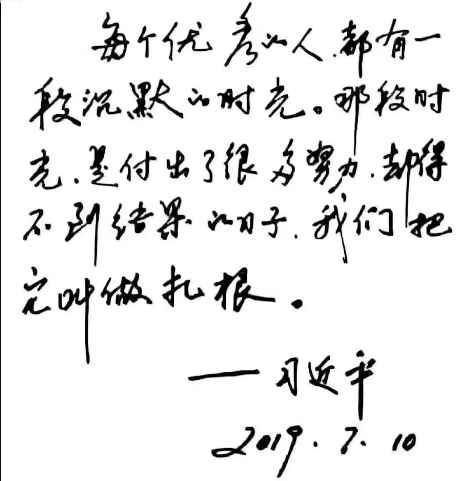 每个优秀的人，都有一
段沉默的时光。那段时
光，是付出了很多努力，却得
不到结果的日子，我们把
它叫做扎根。
——习近平
2019.7.10